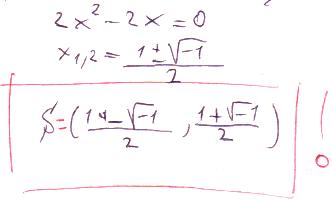 2x² - 2x = 0
x₁,₂ = (1 ± √-1) / 2
S = ((1 - √-1) / 2 , (1 + √-1) / 2) !